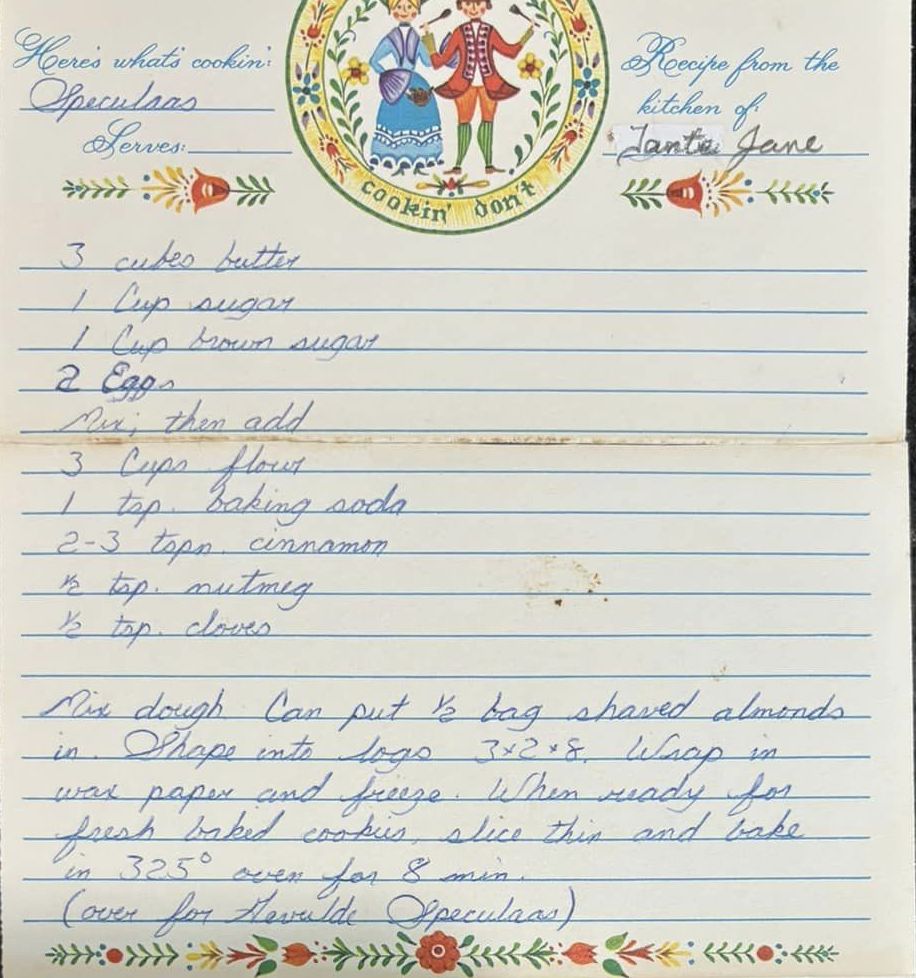 Here's what's cookin:
Speculaas
Serves:
Recipe from the
kitchen of:
Tante Jane
cookin' don't
3 cubes butter
1 Cup sugar
1 Cup brown sugar
2 Eggs
Mix; then add
3 Cups flour
1 tsp. baking soda
2-3 tspn. cinnamon
½ tsp. nutmeg
½ tsp. cloves
Mix dough Can put ½ bag shaved almonds
in. Shape into logs 3×2×8. Wrap in
wax paper and freeze. When ready for
fresh baked cookies, slice thin and bake
in 325° oven for 8 min.
(over for Gevulde Speculaas)